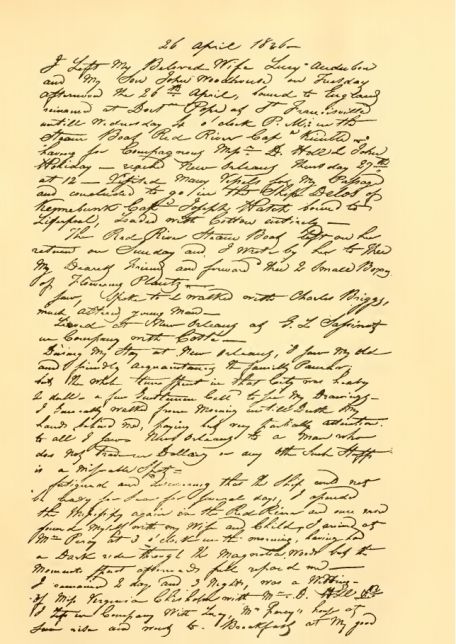 26 April 1826—
I Left My Beloved Wife Lucy Audubon
and My Son John Woodhouse on Tuesday
afternoon the 26th April, bound to England,
remained at Doctr Pope at St Francisville
untill Wednesday 4 o'clock P. M: in the
Steam Boat Red River Capn Kimble—
having for Compagnons Messrs D. Hall & John
Holiday— reached New Orleans Thursday 27th
at 12— Visited Many Vessels for My Passage
and concluded to go in the Ship Delos of
Kennebunk Capn Joseph Hatch bound to
Liverpool, Loaded with Cotton entirely—
The Red River Steam Boat left on her
return on Sunday and I wrote by her to Thee
My Dearest Friend and forwarded Thee 2 Small Boxes
of Flowering Plants—
saw, spoke to & walked with Charles Briggs,
much altered young man—
Lived at New Orleans at G. L. Sapinot
in Company with Costé—
During My Stay at New Orleans, I saw My old
and friendly acquaintances the familly Pamar;
but the whole time spent in that City was heavy
& dull— a few Gentlemen Call'd to see My Drawings—
I Generally walked from Morning untill Dusk My
hands behind me, paying but very partially attention
to all I saw— New Orleans to a Man who
does not trade in Dollars or any other Such Stuff
is a miserable Spot—
fatigued and discovering that the Ship could not
be ready for Sea for several days, I ascended
the Mississipy again in the Red River and once more
found Myself with my Wife and Child. I arrived at
Mrs Percy at 3 o'clock in the morning, having had
a Dark ride through the Magnolia Woods but the
Moments spent afterwards full repaid me—
I remained 2 days and 3 Nights, was a Wedding—
of Miss Virginia Chisholm with Mr. D. Hall &c
I left in Company With Lucy, Mrs Percys house at
Sun rise and went to Breakfast at My good